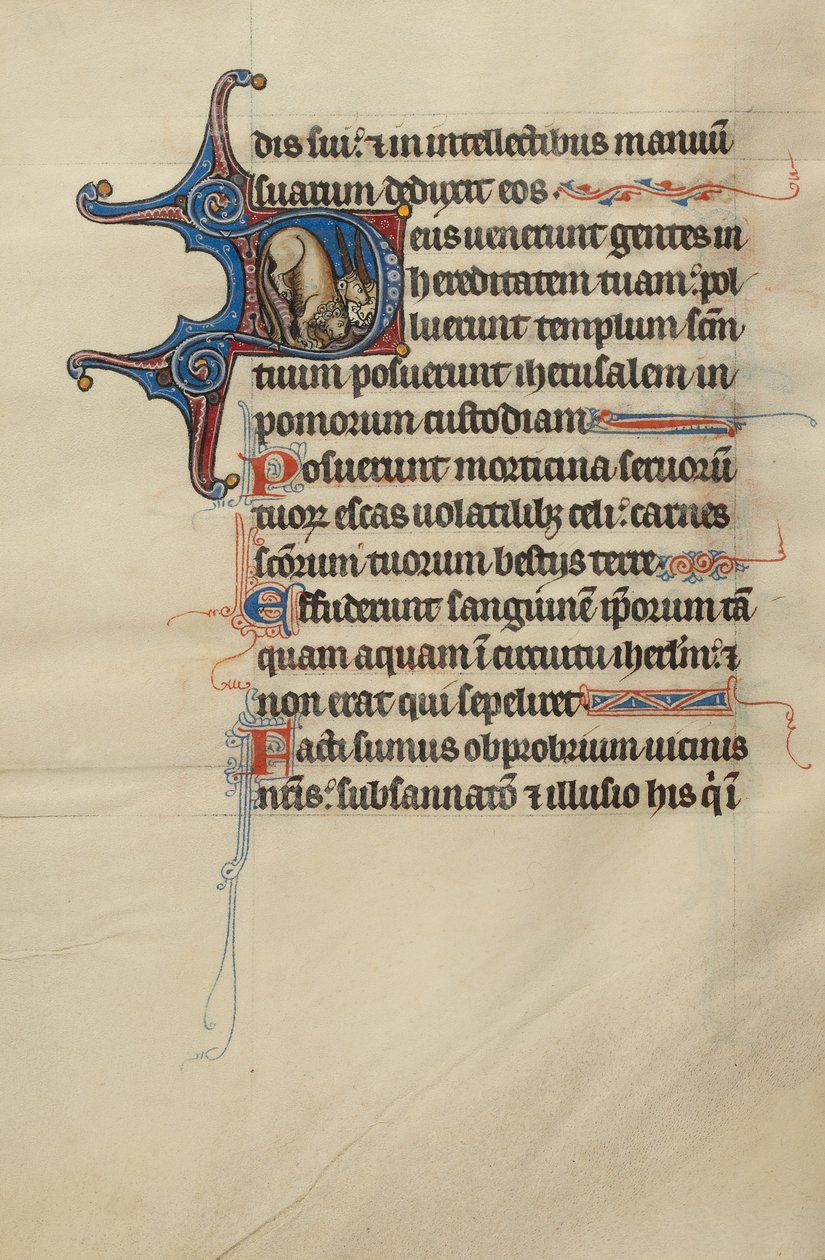 dis sui: ⁊ in intellectibus manuū
suarum deduxit eos.
Deus uenerunt gentes in
hereditatem tuam: pol
luerunt templum scm̄
tuum posuerunt iherusalem in
pomorum custodiam
Posuerunt morticina seruorū
tuoꝝ escas uolatilibꝫ celi: carnes
sc̄orum tuorum bestiis terre.
Effuderunt sanguinē ip̄orum tā
quam aquam ī circuitu iherl'm: ⁊
non erat qui sepeliret
Facti sumus obprobrium uicinis
nr̄is: subsannatō ⁊ illusio his qͥ ī